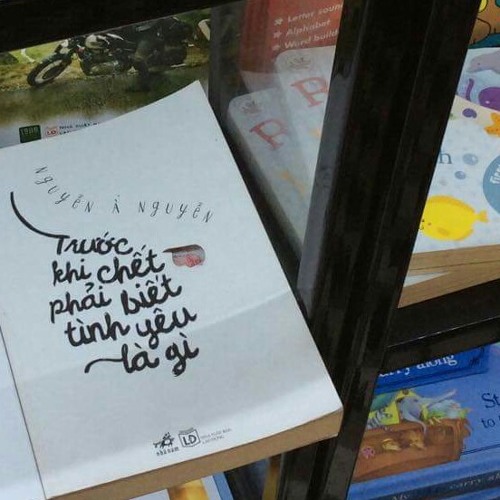 ★ Letter soun
★ Alphabet
★ Word build
1980
LD
NGUYỄN À NGUYỄN
Trước
khi chết
phải biết
tình yêu
là gì
nhã nam
LD
NHÀ XUẤT BẢN
LAO ĐỘNG
carry along
St
to